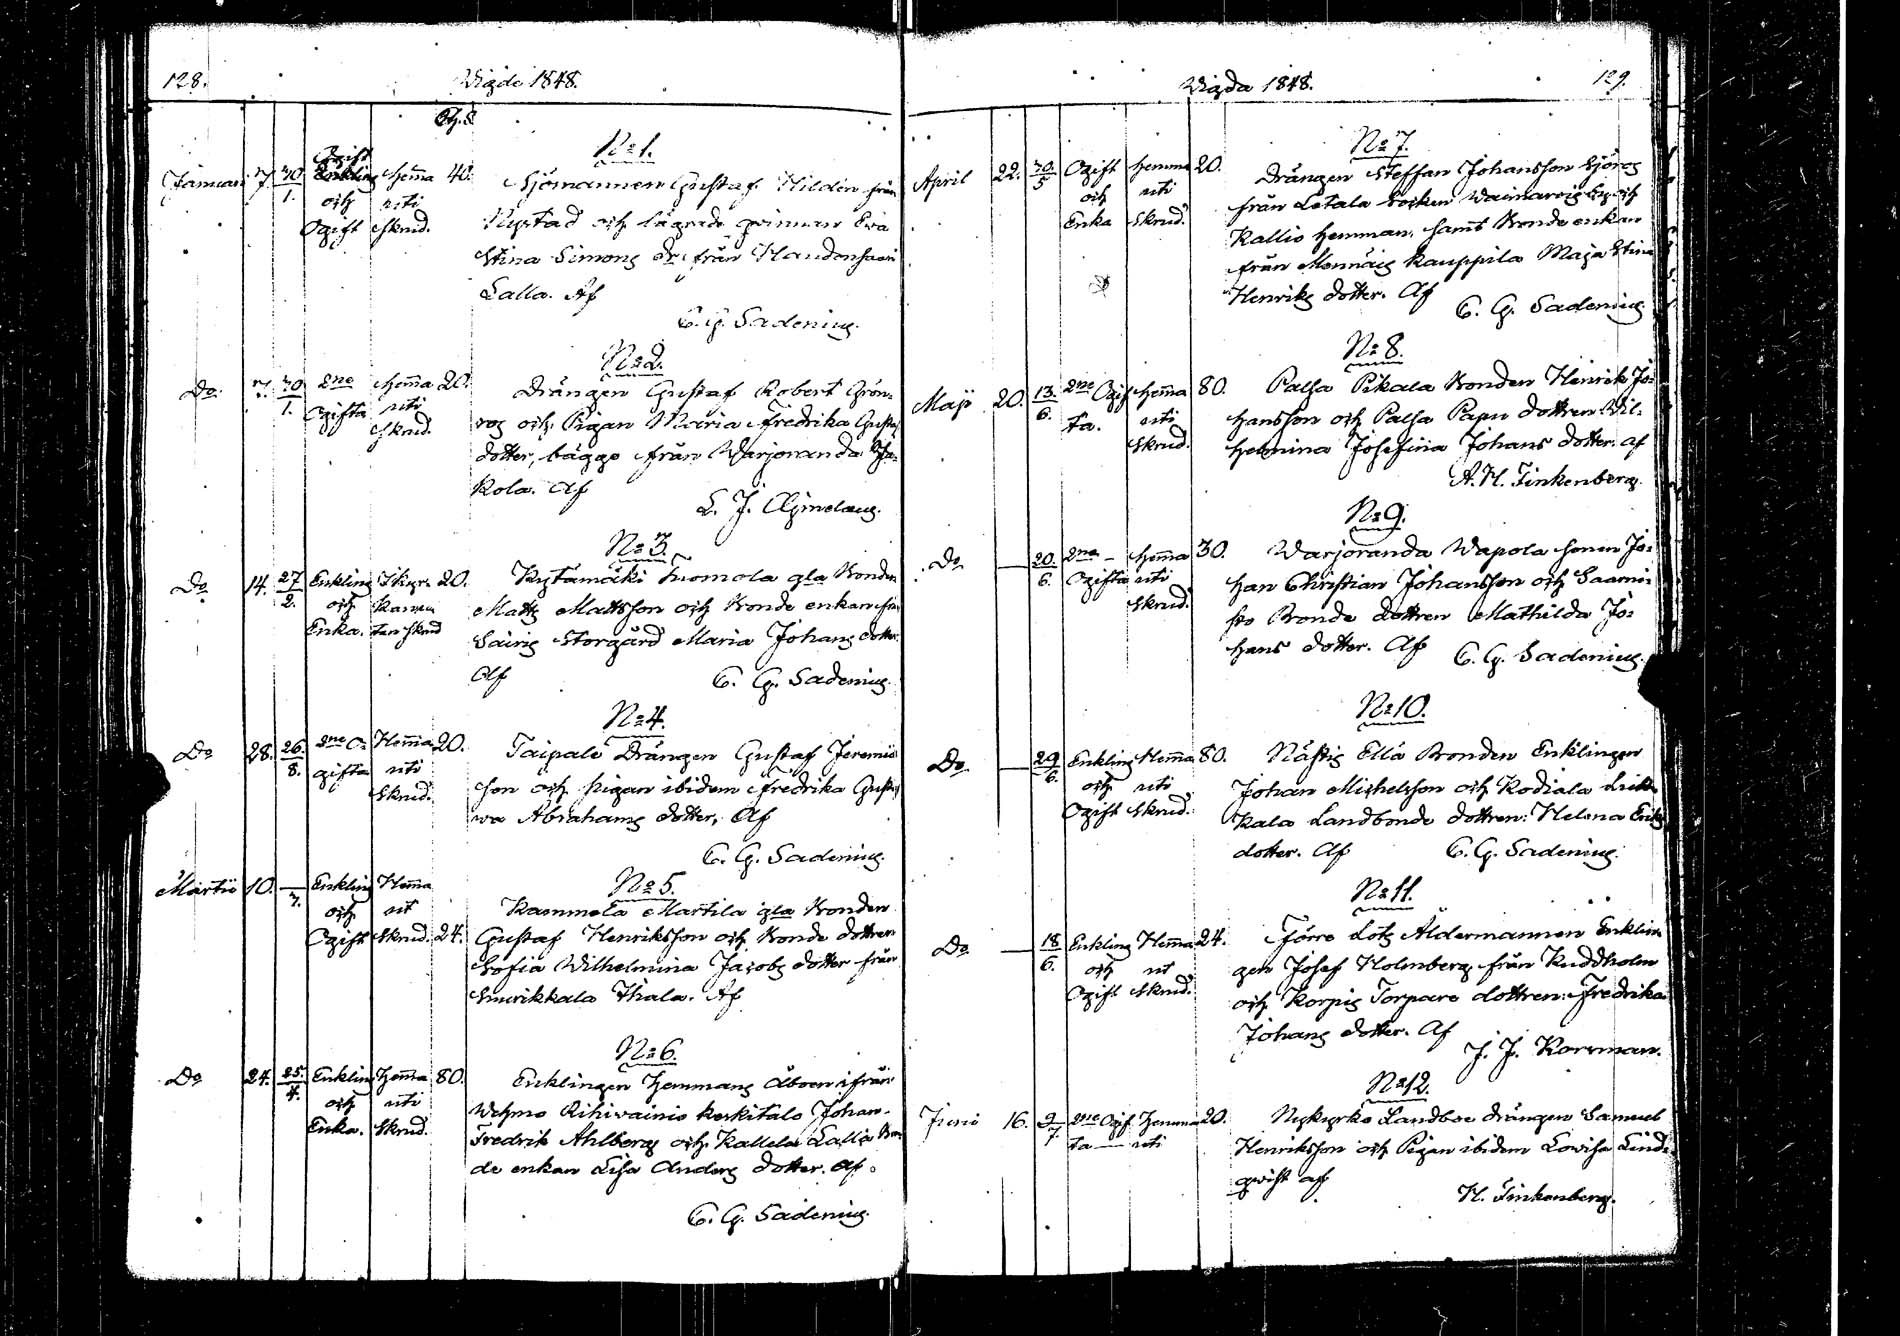 128.
Wigde 1848.
No 1.
Januari 7. 30/1. Ogift Enkling och Ogift Hema uti Skrud. 40.
Sjömannen Gustaf Hildén från
Nystad och lägrade qvinnan Ewa
Stina Simons dr från Haudonsaari
Lalla. Af
C. G. Sadenius.
No 2.
Do 7. 30/1. 2ne Ogifta Hema uti Skrud. 20.
Drängen Gustaf Robert Grön-
ros och Pigan Maria Fredrika Gustaf
dotter, bägge från Warjoranda
Kola. Af
L. J. Ægimelaus.
No 3.
Do 14. 27/2. Enkling och Enka. Skrud 20.
Kytämäki Suomola gla Bonden
Matts Mattsson och Bonde enkan från
Sairis Storgård Maria Johans dotter.
Af
C. G. Sadenius.
No 4.
Do 28. 26/8. 2ne Ogifta Hema uti Skrud. 20.
Taipale Drängen Gustaf Jeremias
son och pigan ibidem Fredrika Gusta
va Abrahams dotter, Af
C. G. Sadenius.
No 5.
Martii 10. —/7. Enkling och Ogift Hema ut Skrud. 24.
Kammela Martila gla Bonden
Gustaf Henriksson och Bonde dottren
Sofia Wilhelmina Jacobs dotter från
Smurikkala Ihala. Af
No 6.
Do 24. 25/4. Enkling och Enka. Hema uti Skrud. 80.
Enklingen Hemmans Åboen ifrån
Wehmo Rihivainio keskitalo Johan
Fredrik Ahlberg och Kallela Lallis Bon
de enkan Lisa Anders dotter. Af
C. G. Sadenius.
Wigda 1848.
129.
No 7.
April 22. 30/5 Ogift och Enka Hemma uti Skrud. 20.
Drängen Steffan Johansson Sjöros
från Letala Socken Waimaro by och
Kallio hemman, samt Bonde enkan
från Mennäis Kauppila Maja Stina
Henriks dotter. Af
C. G. Sadenius.
No 8.
Maji 20. 13/6. 2ne Ogifta. Hema uti Skrud. 80.
Palsa Pikala Bonden Henrik Jo-
hansson och Palsa Papu dottren Wil-
helmina Josefina Johans dotter. af
A. H. Finkenberg.
No 9.
Do — 20/6. 2ne Ogifta Hema uti Skrud. 30.
Warjoranda Wapola sonen Jo-
han Christian Johansson och Saarni-
sto Bonde dottren Mathilda Jo-
hans dotter. Af
C. G. Sadenius.
No 10.
Do — 29/6. Enkling och Ogift Hema uti Skrud. 80.
Nästis Ellä Bonden Enklingen
Johan Michelsson och Kodiala
kala Landbonde dottren: Helena Eriks
dotter. Af
C. G. Sadenius.
No 11.
Do — 18/6. Enkling och Ogift Hema ut Skrud. 24.
Förre Lots Åldermannen Enklin
gen Josef Holmberg från Kuddholm
och Korpis Torpare dottren: Fredrika
Johans dotter. Af
J. J. Korsman.
No 12.
Junii 16. 9/7. 2ne Ogifta Hemma uti 20.
Nykyrko Landboe drängen Samuel
Henriksson och Pigan ibidem Lovisa Lind-
qvist af
H. Finkenberg.